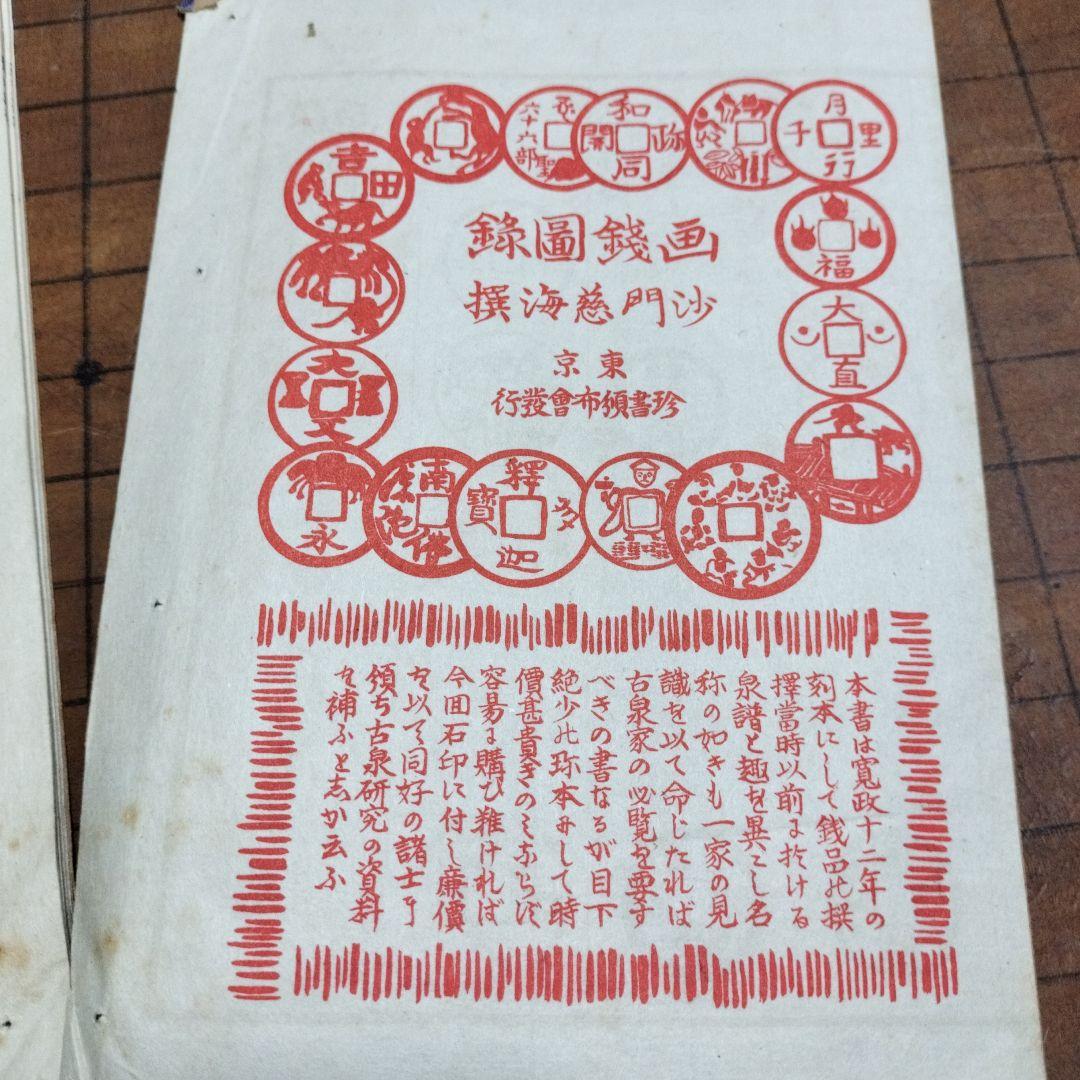 画錢圖錄
沙門慈海撰
東京
珍書頒布會發行
和同開珎
六十六部聖
吉田
千里行月
福
大直
大文
永
釋迦多寶
本書は寛政十二年の
刻本にして錢品の撰
擇當時以前に於ける
泉譜と趣を異にし名
称の如きも一家の見
識を以て命じたれば
古泉家の必覧を要す
べきの書なるが目下
絶少の珍本にして時
價甚貴きのみならず
容易に購ひ難ければ
今回石印に付し廉價
を以て同好の諸士に
頒ち古泉研究の資料
を補ふと志か云ふ